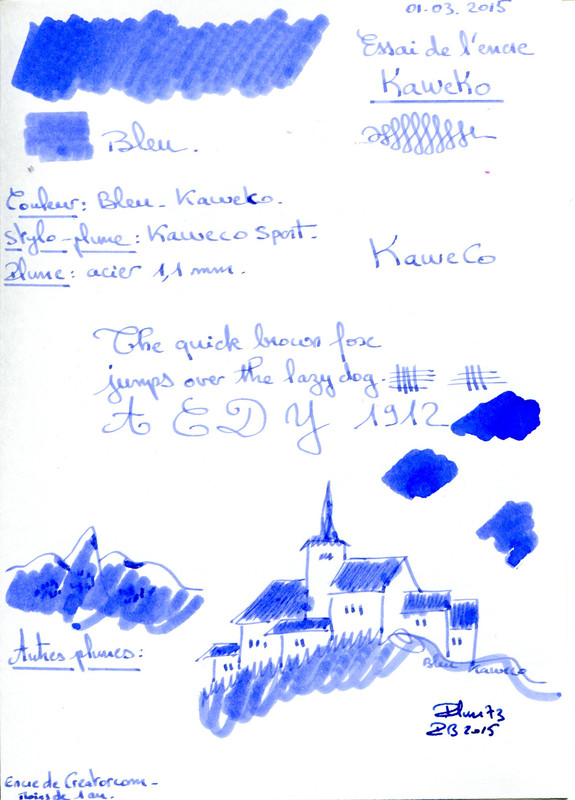 01-03. 2015
Essai de l'encre
KaweKo
Bleu.
Couleur: Bleu - Kaweko.
Stylo-plume: Kaweco Sport.
Plume: acier 1,1 mm.
KaweCo
The quick brown fox
jumps over the lazy dog.
A E D Y 1912
Autres plumes:
Bleu Kaweco
Plum73
PB 2015
Encre de Creatorcom -
moins de 1 an.